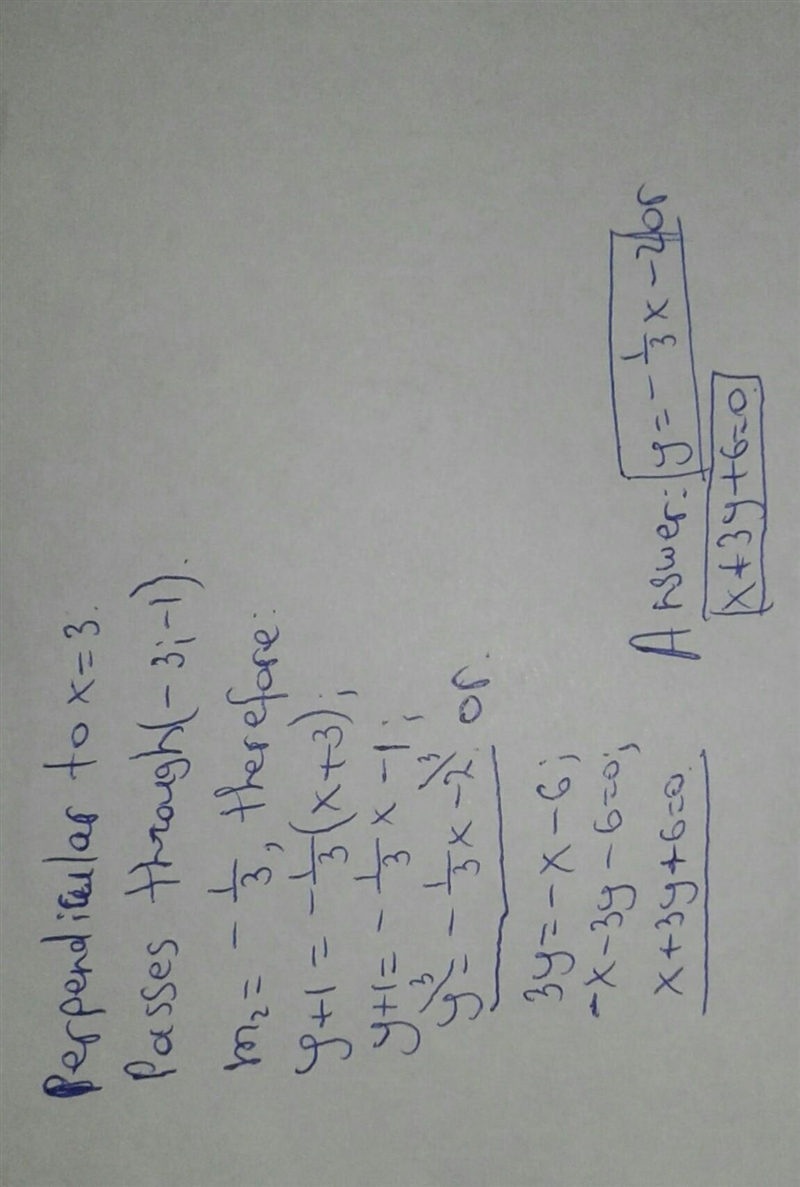 Perpendicular to x=3.
Passes through(-3;-1).
m₂ = -1/3, therefore:
y+1 = -1/3(x+3);
y+1 = -1/3 x -1;
y\3 = -1/3 x -2\3 or
3y = -x -6;
-x -3y -6=0;
x+3y+6=0
Answer: y = -1/3 x -2 or
x+3y+6=0